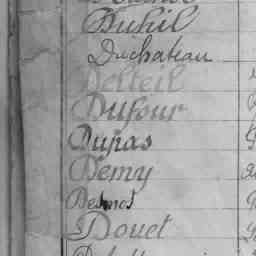 Duhil
Duchateau
Delteil
Dufour
Dupas
Demy
Desmos
Douet